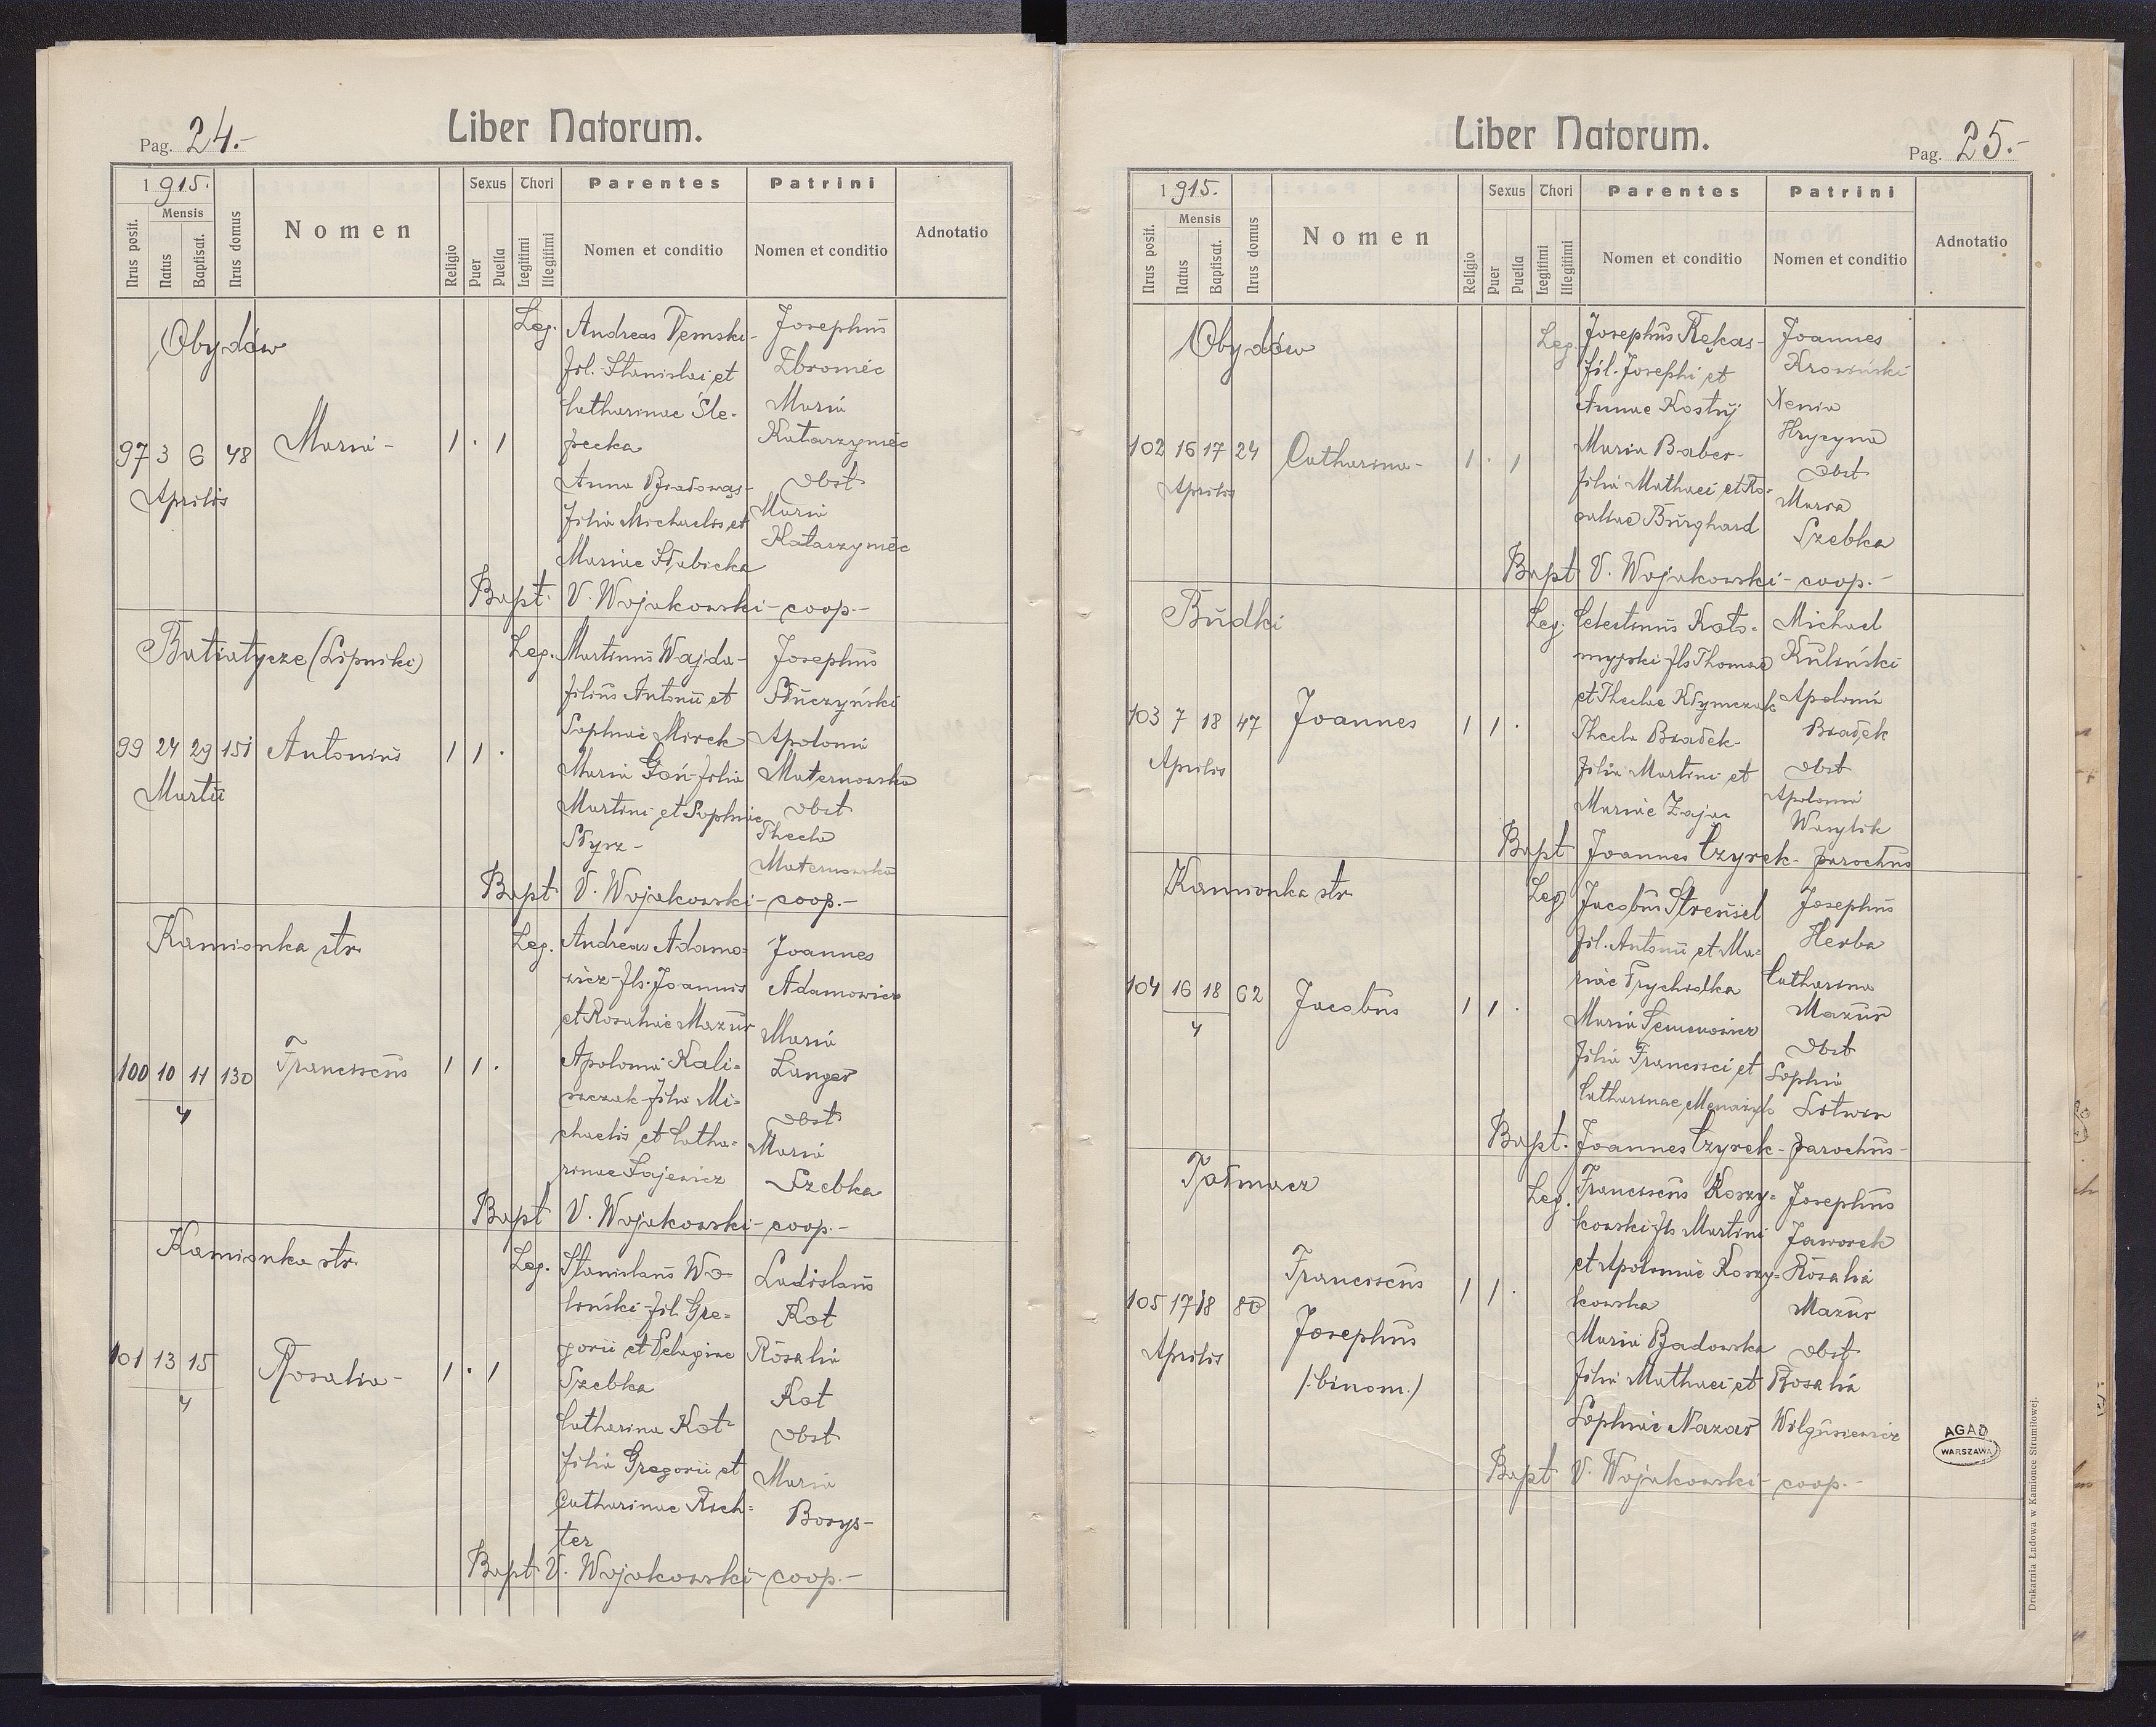 Pag. 24.-
Liber Natorum.
1915.
Nrus posit.
Mensis
Natus
Baptisat.
Nrus domus
Nomen
Religio
Sexus
Puer
Puella
Thori
Legitimi
Illegitimi
Parentes
Nomen et conditio
Patrini
Nomen et conditio
Adnotatio
Obydów
97 3 6 48 Maria- 1 . 1
Aprilis
Leg. Andreas Demski-
fil. Stanislai et
Catharinae Śle-
pecka
Anna
filia Michaelis et
Mariae Słabicka
Josephus
Zbroméc
Maria
Katarzyméc
Obst
Maria
Katarzyméc
Bapt. V. Wojakowski - coop.-
Batiatycze (Lipniki)
99 24 29 151 Antonius 1 1 .
Martii
Leg. Martinus Wajda-
filius Antonii et
Sophiae Mirek
Maria Goń-filia
Martini et Sophiae
Słysz-
Josephus
Słuczyński
Apolonia
Maternowska
Obst
Thecla
Maternowska
Bapt V. Wojakowski - coop.-
Kamionka str.
100 10 11 130 Franciscus 1 1 .
4
Leg. Andreas Adamo-
wicz-fls. Joannis
et Rosaliae Mazur
Apolonia Kali-
szczak-filia Mi-
chaelis et Catha-
rinae Sajewicz
Joannes
Adamowicz
Maria
Langer
Obst
Maria
Szebka
Bapt V. Wojakowski - coop.-
Kamionka str.
101 13 15 Rosalia- 1 . 1
4
Leg. Stanislaus Wo-
loński-fil. Gre-
gorii et Pelagiae
Szebka
Catharina Kot-
filia Gregorii et
Catharinae Rich-
ter
Ladislaus
Kot
Rosalia
Kot
Obst
Maria
Borys-
Bapt V. Wojakowski - coop.-
Liber Natorum.
Pag. 25.-
1915.
Nrus posit.
Mensis
Natus
Baptisat.
Nrus domus
Nomen
Religio
Sexus
Puer
Puella
Thori
Legitimi
Illegitimi
Parentes
Nomen et conditio
Patrini
Nomen et conditio
Adnotatio
Obydów
102 16 17 24 Catharina- 1 . 1
Aprilis
Leg. Josephus Rękas-
fil. Josephi et
Annae Kostyj
Maria Baber-
filia Mathaei et Ro-
saliae Burghard
Joannes
Krosiński
Xenia
Hrycyna
Obst
Maria
Szebka
Bapt V. Wojakowski - coop.-
Budki
103 7 18 47 Joannes 1 1 .
Aprilis
Leg. Celestinus Koło-
myjski-fls Thomae
et Theclae Klymczak
Thecla Bradek-
filia Martini et
Mariae Zając
Michael
Kuliński
Apolonia
Bradek
Obst
Apolonia
Wasylik
Bapt Joannes Czyrek - parochus
Kamionka str.
104 16 18 62 Jacobus 1 1 .
4
Leg. Jacobus Strensel
fil. Antonii et Ma-
riae Prychidka
Maria Semenowicz
filia Francisci et
Catharinae
Josephus
Herba
Catharina
Mazur
Obst
Sophia
Litwin
Bapt. Joannes Czyrek - parochus-
Tołmacz
105 17 18 80 Franciscus 1 1 .
Josephus
Aprilis
/:binom:/
Leg. Franciscus Koszy-
kowski-fls Martini
et Apoloniae Koszy-
kowska
Maria Badowska
filia Mathaei et
Sophiae Nazar
Josephus
Jaworek
Rosalia
Mazur
Obst
Rosalia
Wilgusiewicz
Bapt V. Wojakowski - coop.-
AGAD
WARSZAWA
Drukarnia Ludowa w Kamionce Strumiłowej.